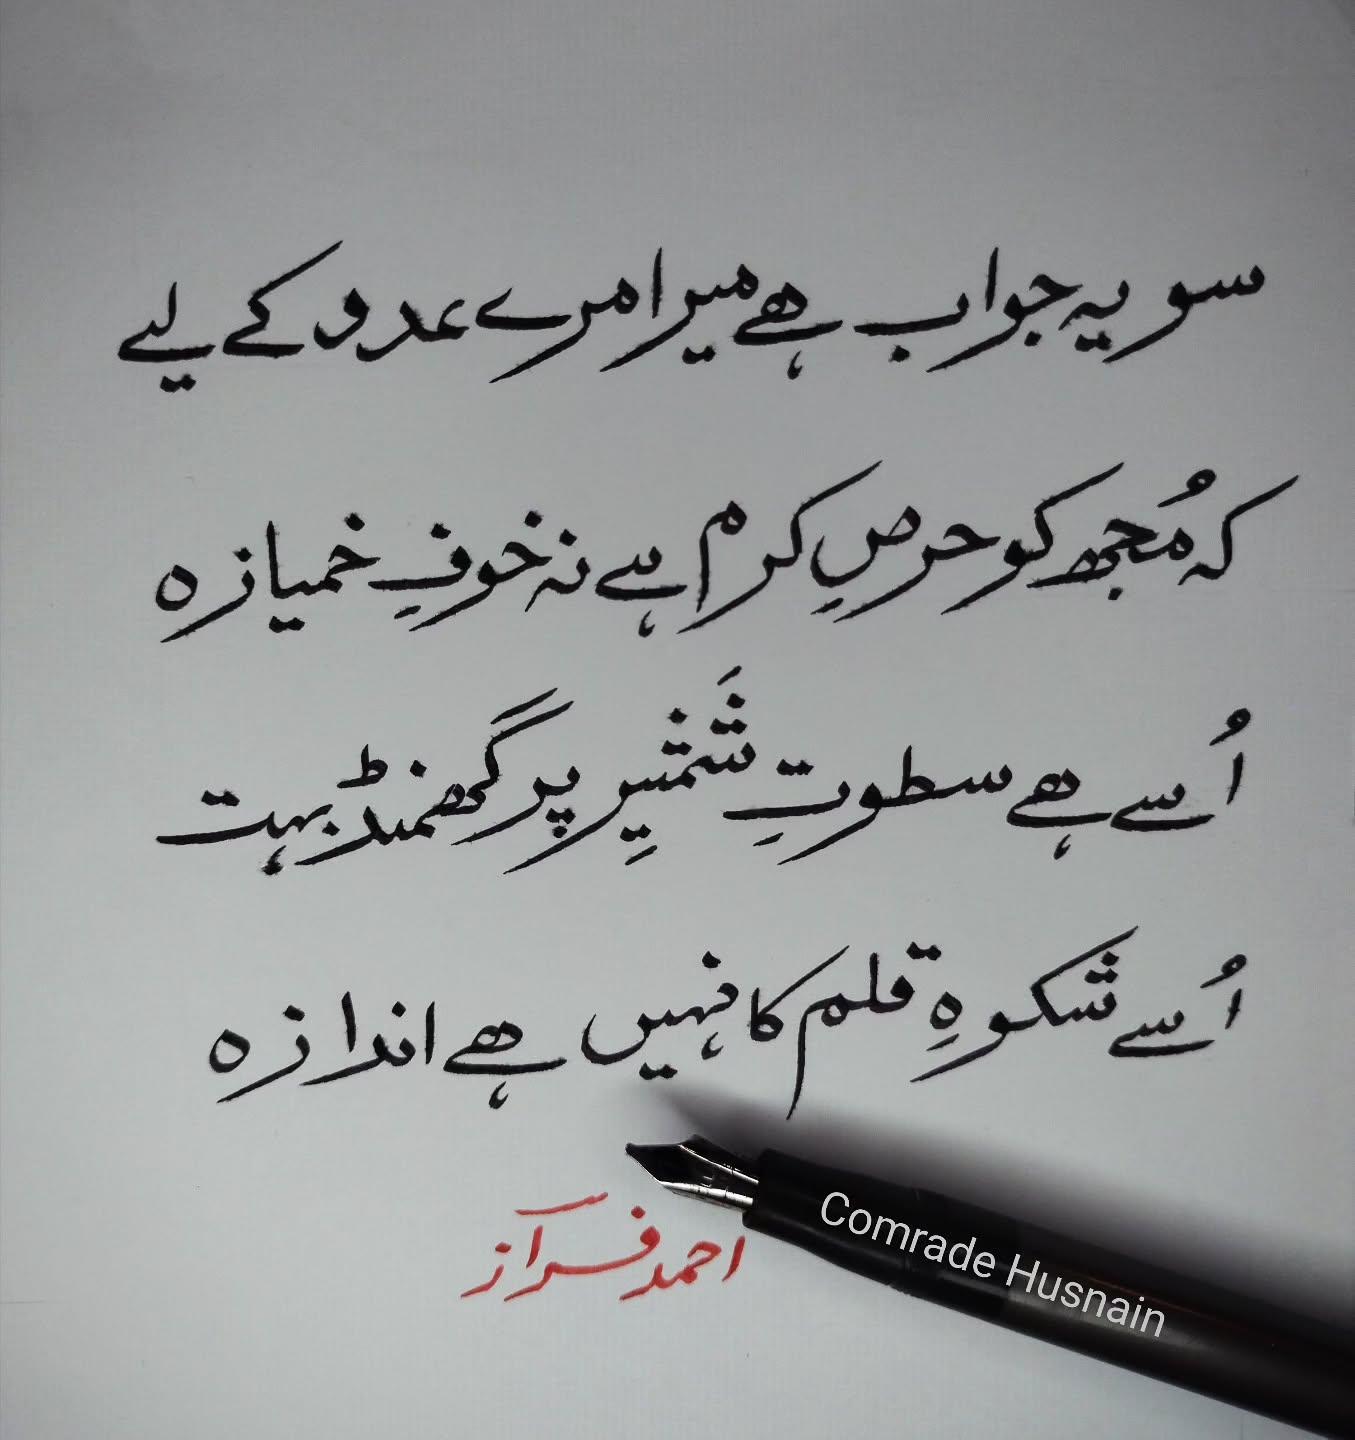 سو یہ جواب ھے میرا مرے عدو کے لیے
کہ مُجھ کو حرصِ کرم ہے نہ خوفِ خمیازہ
اُسے ھے سطوتِ شَمشیرِ پر گھمنڈ بہت
اُسے شکوہِ قلم کا نہیں ھے اندازہ
احمد فراز
Comrade Husnain